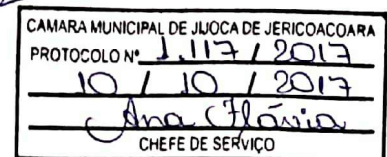 CAMARA MUNICIPAL DE JIJOCA DE JERICOACOARA
PROTOCOLO Nº 1.117 / 2017
10 / 10 / 2017
Ana Flávia
CHEFE DE SERVIÇO